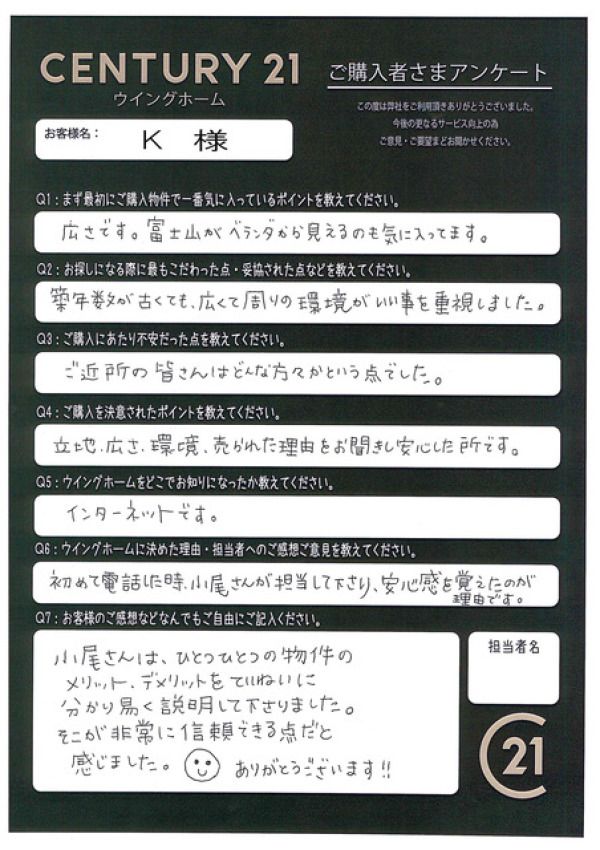 CENTURY 21
ウイングホーム
ご購入者さまアンケート
この度は弊社をご利用頂きありがとうございました。
今後の更なるサービス向上の為
ご意見・ご要望までお聞かせください。
お客様名：
K 様
Q1：まず最初にご購入物件で一番気に入っているポイントを教えてください。
広さです。富士山がベランダから見えるのも気に入ってます。
Q2：お探しになる際に最もこだわった点・妥協された点などを教えてください。
築年数が古くても、広くて周りの環境がいい事を重視しました。
Q3：ご購入にあたり不安だった点を教えてください。
ご近所の皆さんはどんな方々かという点でした。
Q4：ご購入を決意されたポイントを教えてください。
立地、広さ、環境、売られた理由をお聞きし安心した所です。
Q5：ウイングホームをどこでお知りになったか教えてください。
インターネットです。
Q6：ウイングホームに決めた理由・担当者へのご感想ご意見を教えてください。
初めて電話した時、小尾さんが担当して下さり、安心感を覚えたのが
理由です。
Q7：お客様のご感想などなんでもご自由にご記入ください。
小尾さんは、ひとつひとつの物件の
メリット、デメリットをていねいに
分かり易く説明して下さりました。
そこが非常に信頼できる点だと
感じました。 ありがとうございます!!
担当者名
21